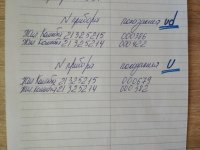 N прибора показания vd
Жил Комната 21325215 000386
Жил комната 21325214 000402
N прибора показания V
Жил Комнат 21325215 000679
Жил комната 21325214 000382